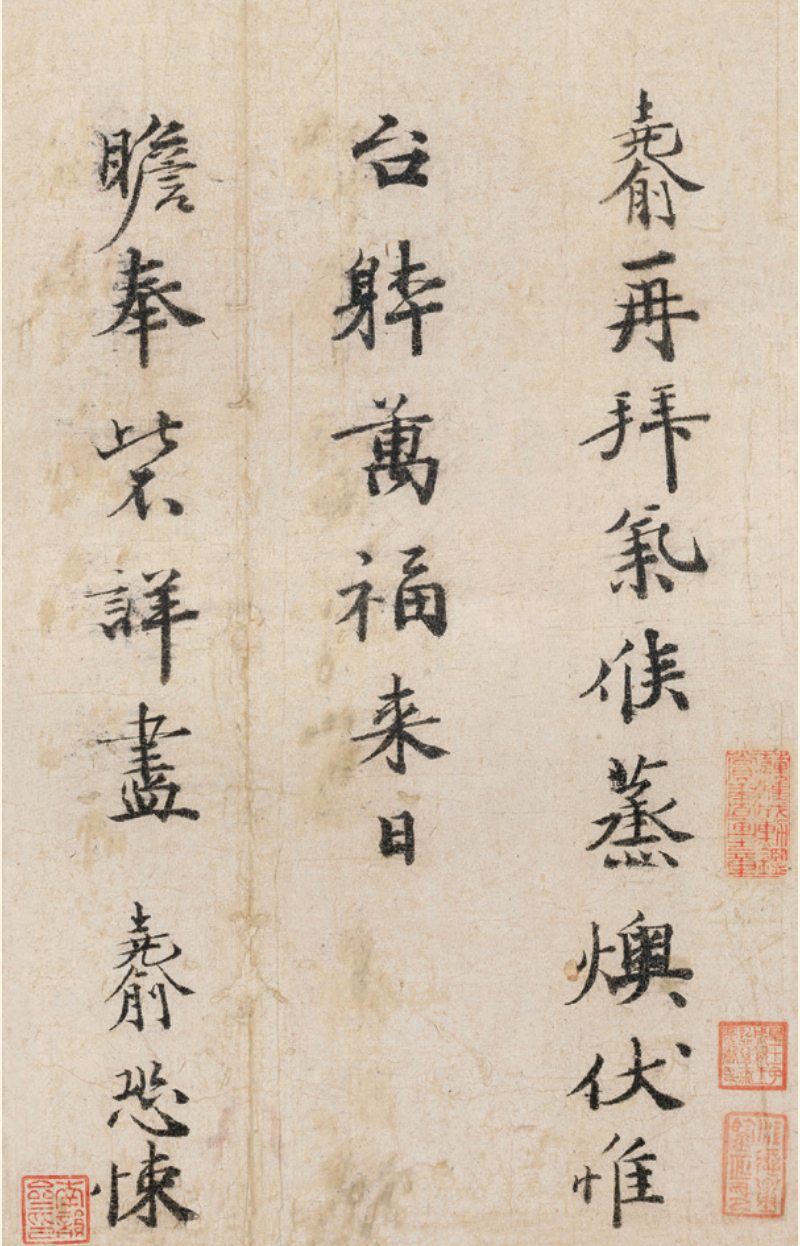 堯俞再拜氣候蒸燠伏惟
台躰萬福来日
瞻奉此不詳盡 堯俞恐悚